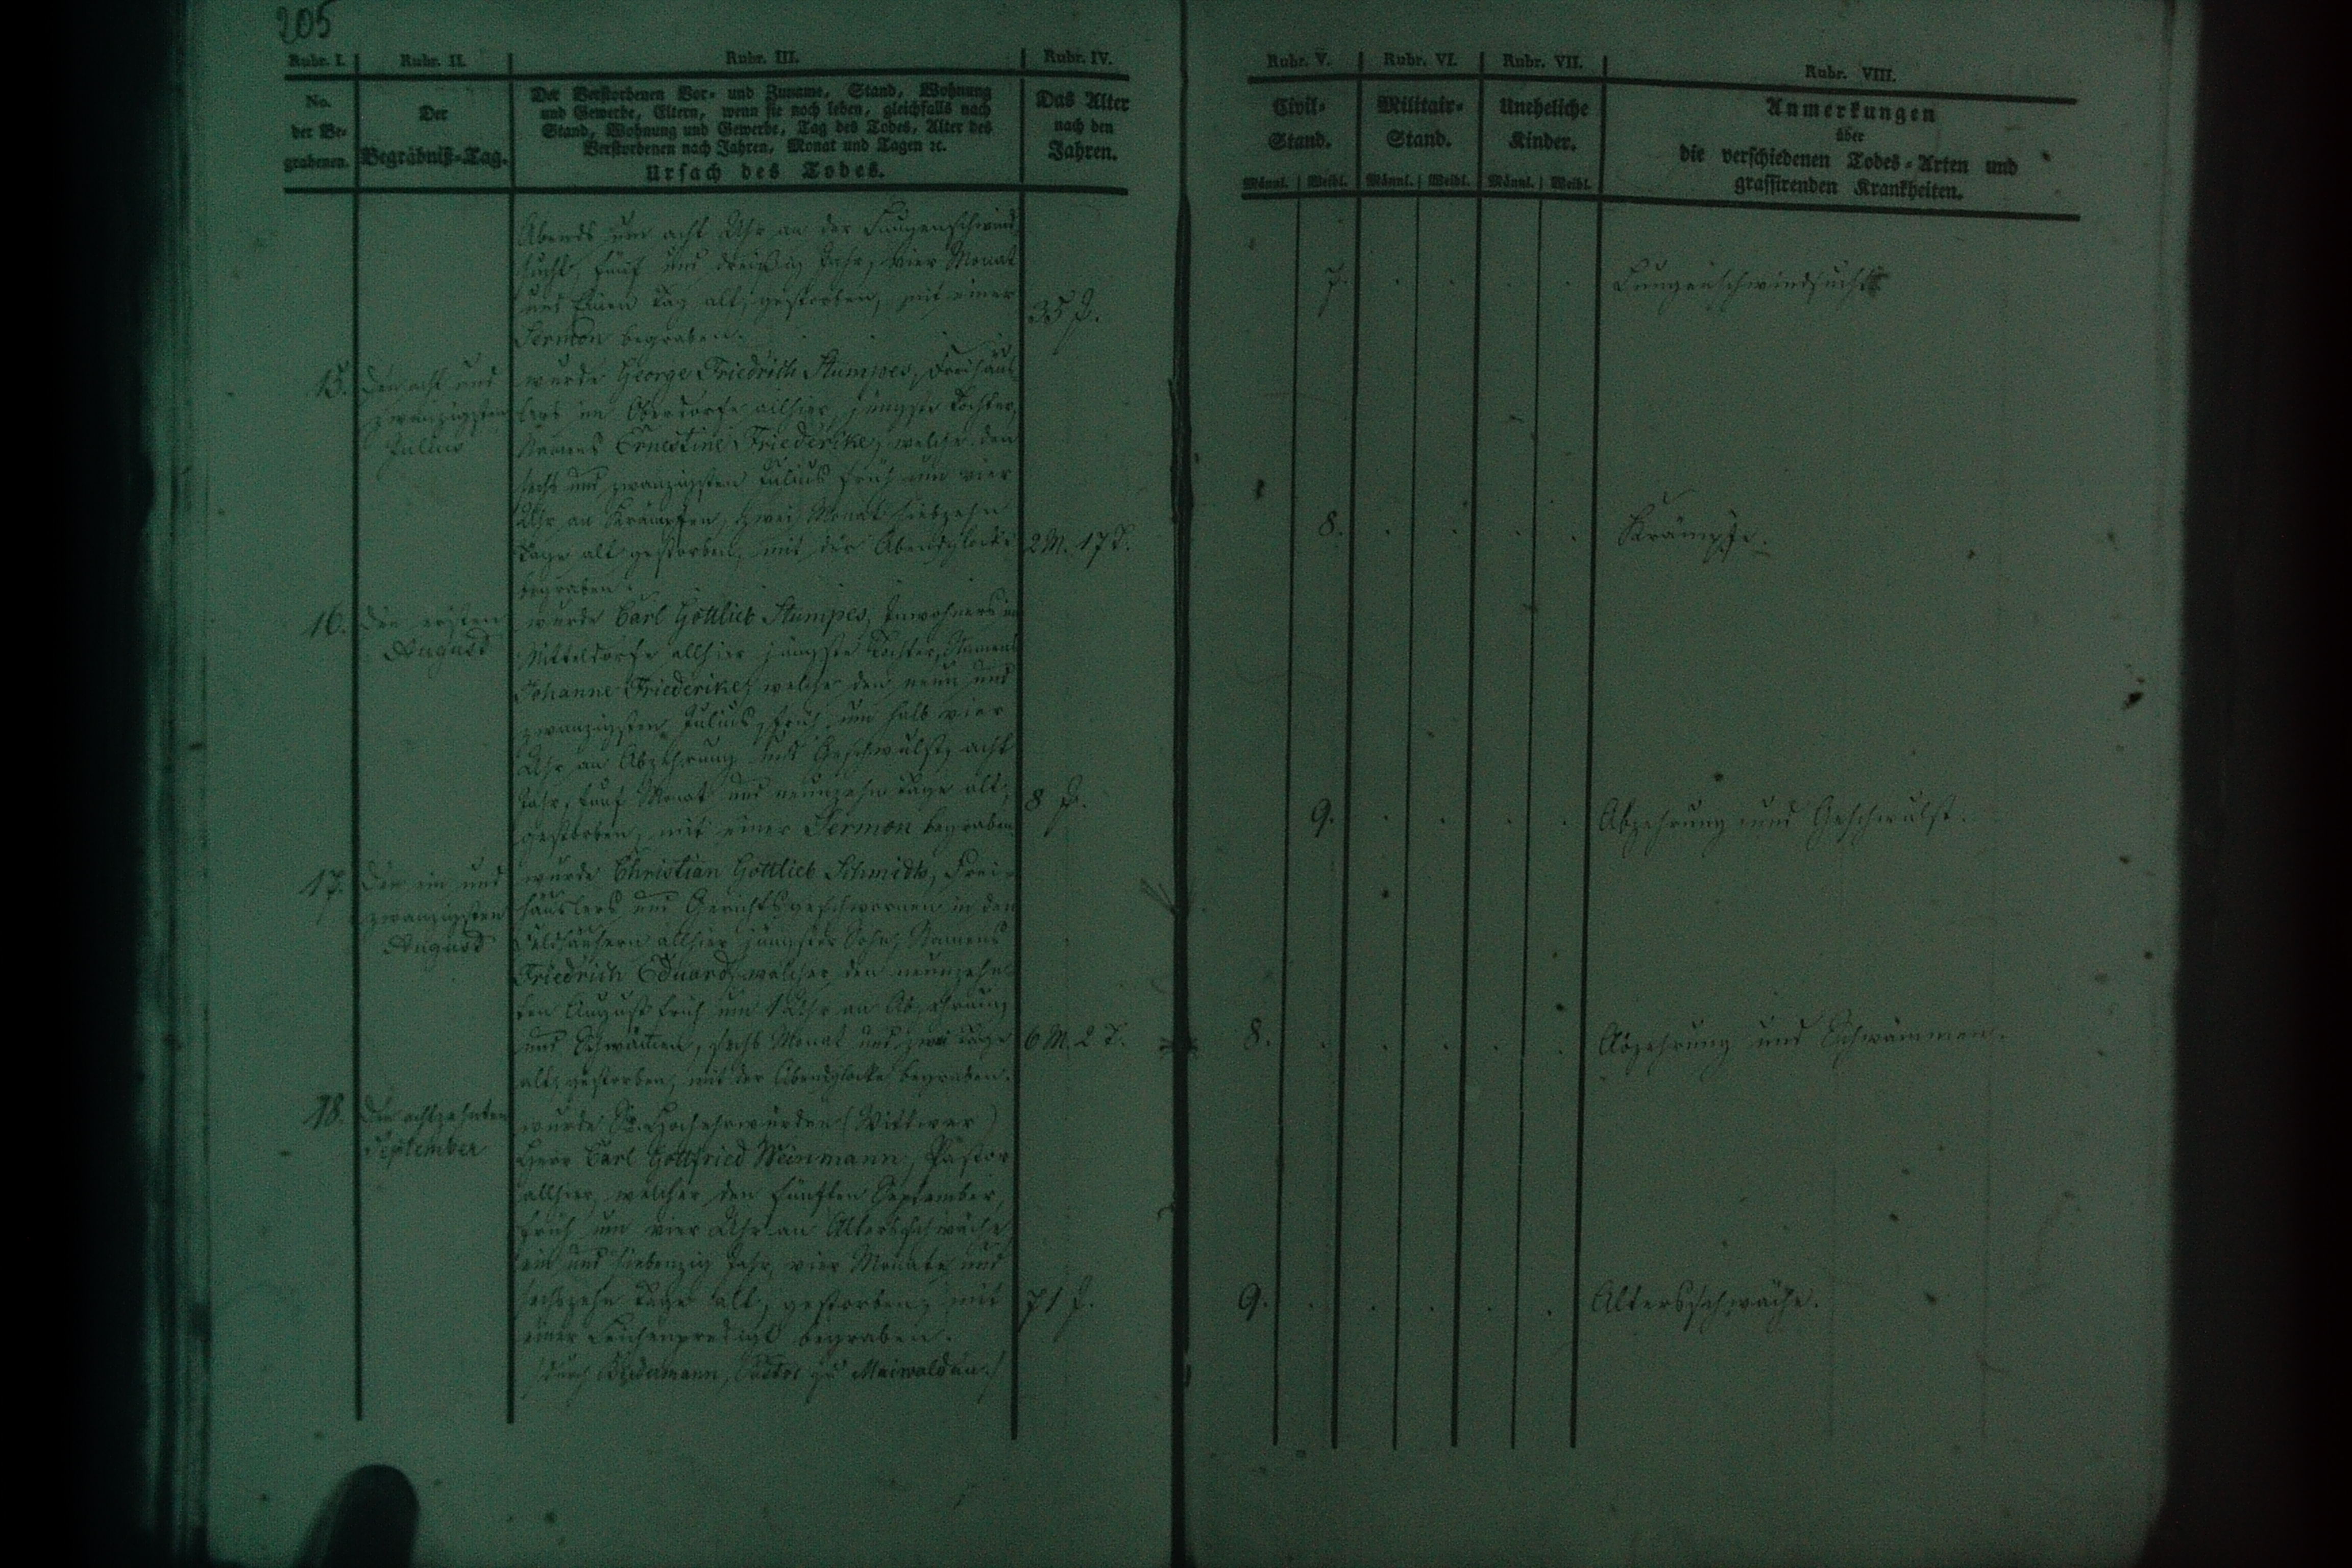 205
Rubr. I. Rubr. II. Rubr. III. Rubr. IV. Rubr. V. Rubr. VI. Rubr. VII. Rubr. VIII.
No. der Be- grabenen.
Der Begräbniß-Tag.
Der Verstorbenen Vor- und Zuname, Stand, Wohnung
und Gewerbe, Eltern, wenn sie noch leben, gleichfalls nach
Stand, Wohnung und Gewerbe, Tag des Todes, Alter des
Verstorbenen nach Jahren, Monat und Tagen ꝛc.
Ursach des Todes.
Das Alter
nach den
Jahren.
Civil-
Stand.
Militair-
Stand.
Uneheliche
Kinder.
Männl. Weibl. Männl. Weibl. Männl. Weibl.
Anmerkungen
über
die verschiedenen Todes-Arten und
grassirenden Krankheiten.
Abends um acht Uhr an der Lungenschwind
sucht, fünf und dreißig Jahr, vier Monat
und Einen Tag alt, gestorben, mit einer
Sermon begraben.
35 J.
7.
Lungenschwindsucht
15.
Den acht und
zwanzigsten
Julius
wurde George Friedrich Stumpes, Freihäus
lers im Oberdorfe allhier, jüngste Tochter,
Namens Ernestine Friederike, welche den
sechs und zwanzigsten Julius früh um vier
Uhr an Krämpfen, zwei Monat siebzehn
Tage alt gestorben, mit der Abendglocke
begraben.
2 M. 17 T.
8.
Krämpfe.
16.
Den ersten
August
wurde Carl Gottlieb Stumpes, Inwohners im
Mitteldorfe allhier jüngste Tochter, Namens
Johanne Friederike, welche den neun und
zwanzigsten Julius, früh um halb vier
Uhr an Abzehrung und Geschwulst, acht
Jahr, fünf Monat und neunzehn Tage alt,
gestorben, mit einer Sermon begraben
8 J.
9.
Abzehrung und Geschwulst.
17.
Den ein und
zwanzigsten
August
wurde Christian Gottlieb Schmidts, Frei-
häuslers und Gerichtsgeschwornen in den
Feldhäusern allhier jüngster Sohn, Namens
Friedrich Eduard, welcher den neunzehn
ten August früh um 1 Uhr an Abzehrung
und Schwämen, sechs Monat und zwei Tage
alt, gestorben, mit der Abendglocke begraben.
6 M. 2 T.
8.
Abzehrung und Schwämmen.
18.
Den achtzehnten
September
wurde Sr. Hochehrwürden (Wittwer)
Herr Carl Gottfried Weinmann, Pastor
allhier, welcher den fünften September,
früh um vier Uhr an Altersschwäche,
ein und siebenzig Jahr, vier Monate und
sechszehn Tage alt, gestorben, mit
einer Leichenpredigt begraben.
durch Pastor zu Maiwaldau.
71 J.
9.
Altersschwäche.